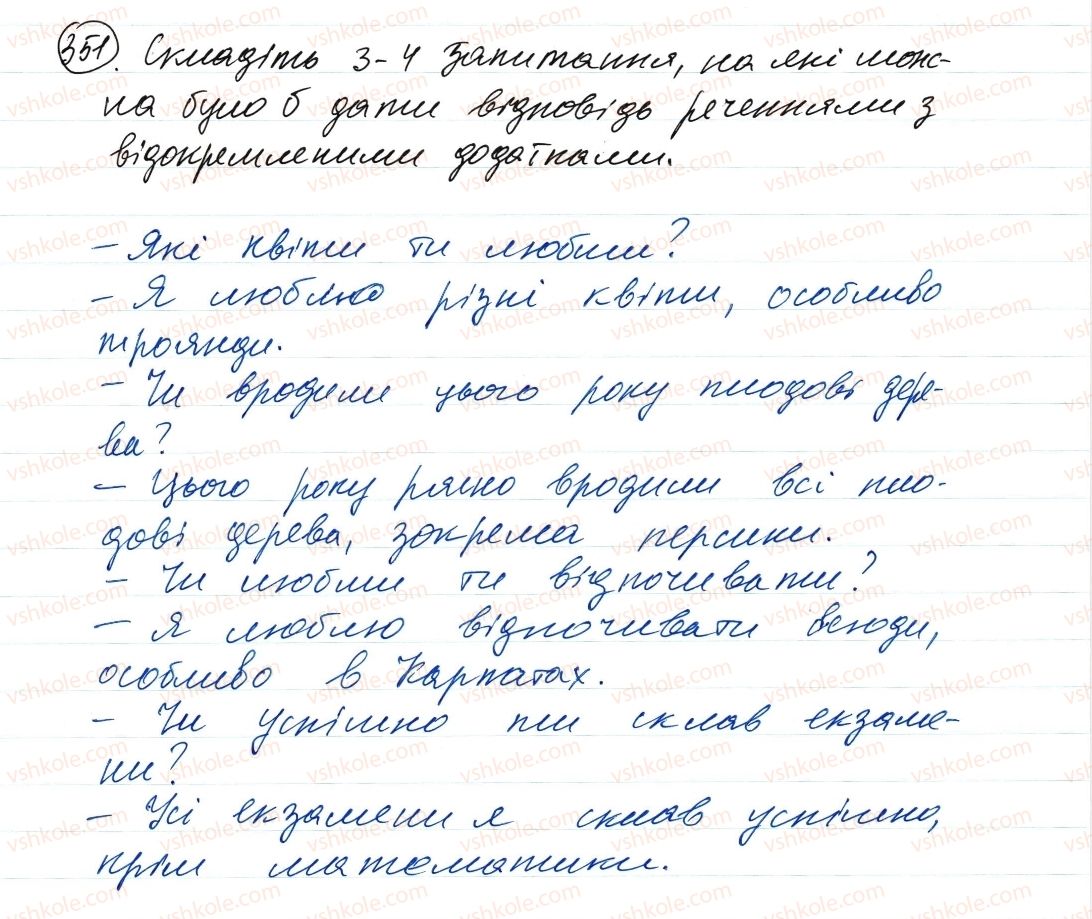 351. Складіть 3-4 запитання, на які мож-
на було б дати відповідь реченнями з
відокремленими додатками.
- Які квіти ти любиш?
- Я люблю різні квіти, особливо
троянди.
- Чи вродили цього року плодові дере-
ва?
- Цього року рясно вродили всі пло-
дові дерева, зокрема персики.
- Чи любиш ти відпочивати?
- Я люблю відпочивати всюди,
особливо в Карпатах.
- Чи успішно ти склав екзаме-
ни?
- Усі екзамени я склав успішно,
крім математики.